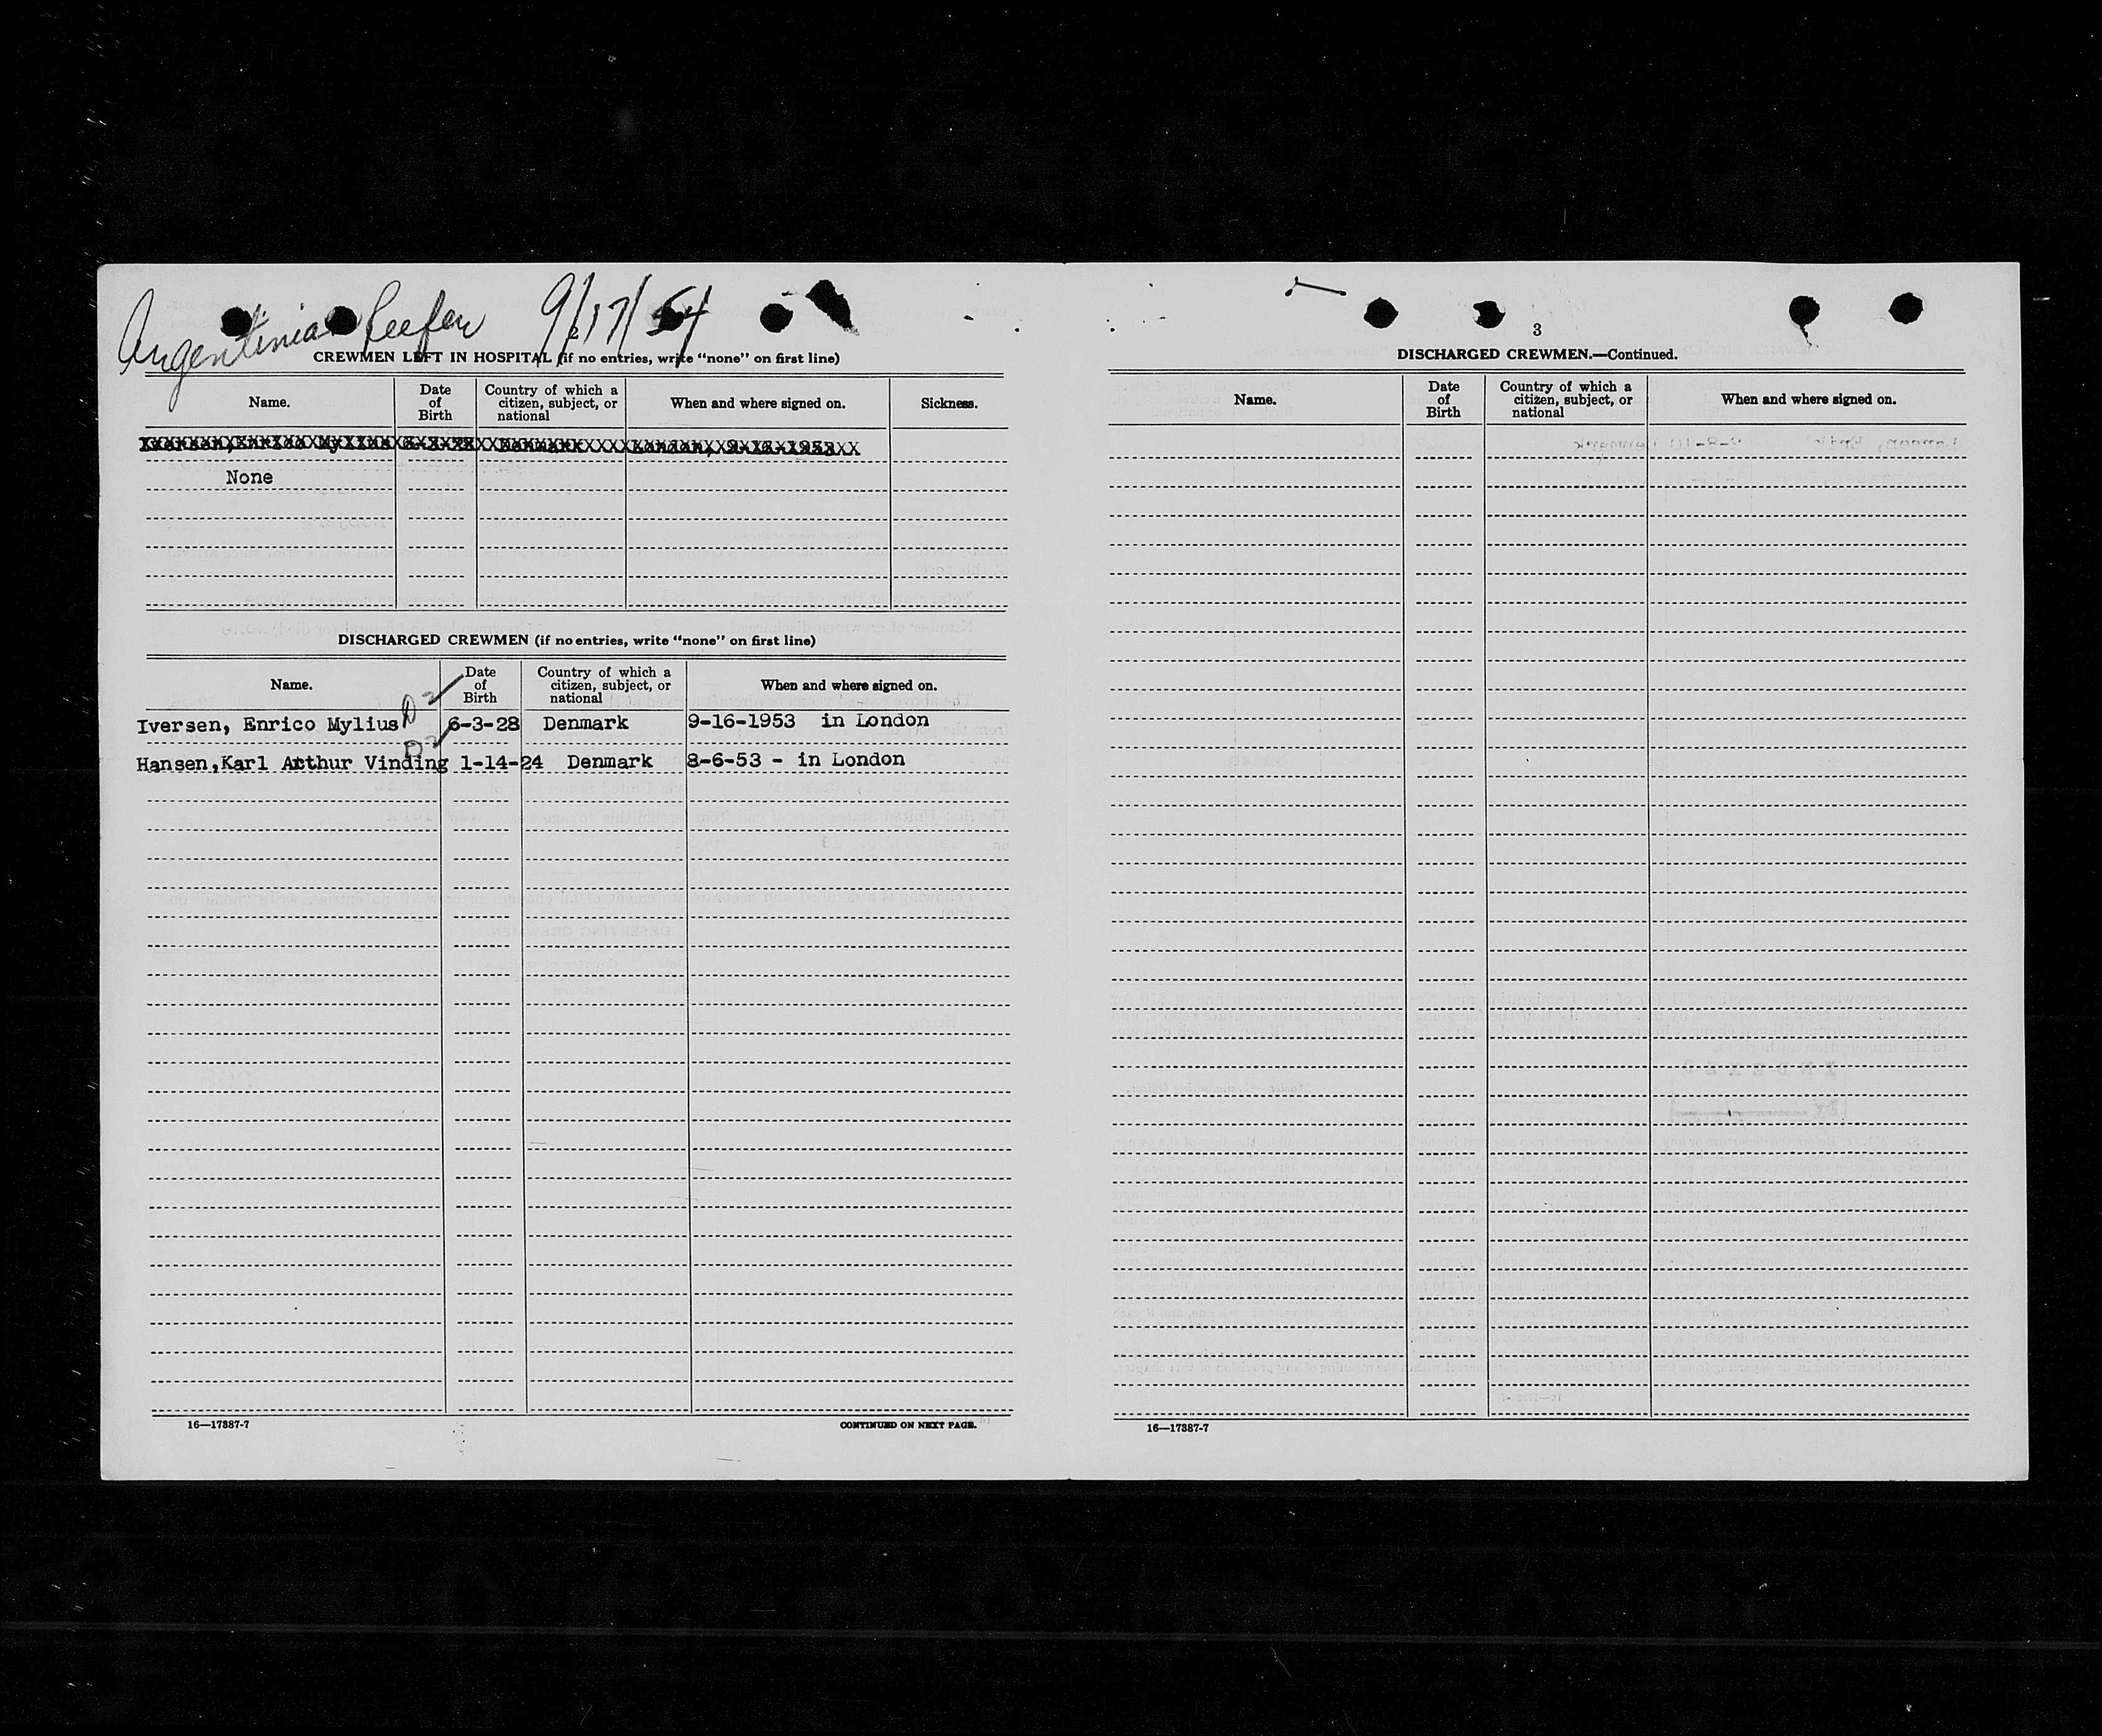 Argentinian Reefer 9/17/54
CREWMEN LEFT IN HOSPITAL (if no entries, write "none" on first line)
Name. Date of Birth Country of which a citizen, subject, or national When and where signed on. Sickness.
Iversen, Enrico Mylius 6-3-28 Denmark London, 9-16-1953
None
DISCHARGED CREWMEN (if no entries, write "none" on first line)
Name. Date of Birth Country of which a citizen, subject, or national When and where signed on.
Iversen, Enrico Mylius D2 6-3-28 Denmark 9-16-1953 in London
Hansen,Karl Arthur Vinding D2 1-14-24 Denmark 8-6-53 - in London
16—17387-7 CONTINUED ON NEXT PAGE.
3
DISCHARGED CREWMEN.—Continued.
Name. Date of Birth Country of which a citizen, subject, or national When and where signed on.
16—17387-7